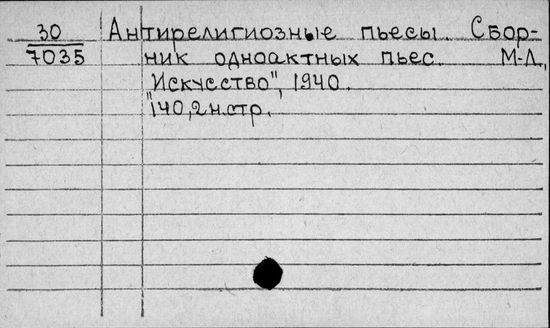 30 Антирелигиозные пьесы. Сбор-
7035 ник одноактных пьес. М-Л.,
"Искусство", 1940.
140, 2 н.стр.